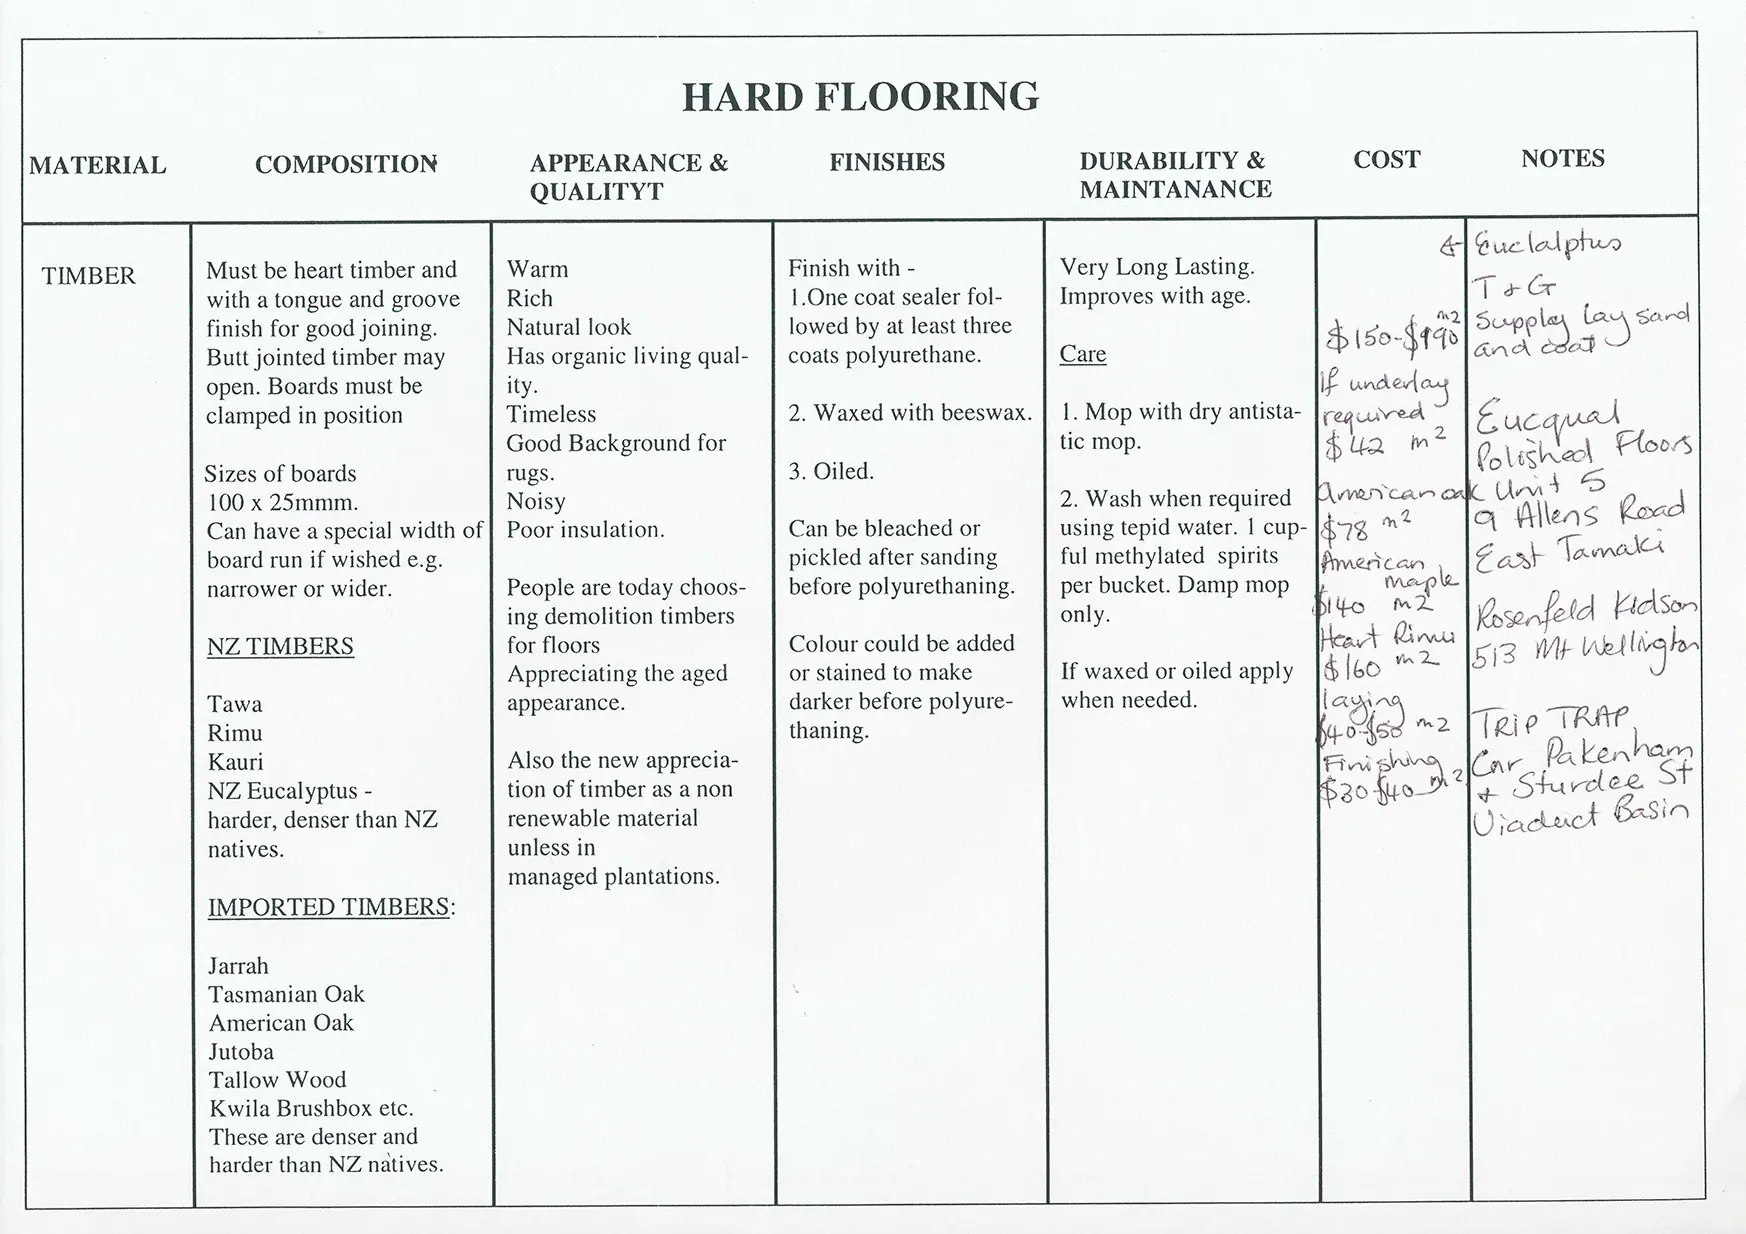 HARD FLOORING
MATERIAL
COMPOSITION
APPEARANCE &
QUALITYT
FINISHES
DURABILITY &
MAINTANANCE
COST
NOTES
TIMBER
Must be heart timber and
with a tongue and groove
finish for good joining.
Butt jointed timber may
open. Boards must be
clamped in position
Sizes of boards
100 x 25mmm.
Can have a special width of
board run if wished e.g.
narrower or wider.
NZ TIMBERS
Tawa
Rimu
Kauri
NZ Eucalyptus -
harder, denser than NZ
natives.
IMPORTED TIMBERS:
Jarrah
Tasmanian Oak
American Oak
Jutoba
Tallow Wood
Kwila Brushbox etc.
These are denser and
harder than NZ natives.
Warm
Rich
Natural look
Has organic living qual-
ity.
Timeless
Good Background for
rugs.
Noisy
Poor insulation.
People are today choos-
ing demolition timbers
for floors
Appreciating the aged
appearance.
Also the new apprecia-
tion of timber as a non
renewable material
unless in
managed plantations.
Finish with -
1.One coat sealer fol-
lowed by at least three
coats polyurethane.
2. Waxed with beeswax.
3. Oiled.
Can be bleached or
pickled after sanding
before polyurethaning.
Colour could be added
or stained to make
darker before polyure-
thaning.
Very Long Lasting.
Improves with age.
Care
1. Mop with dry antista-
tic mop.
2. Wash when required
using tepid water. 1 cup-
ful methylated spirits
per bucket. Damp mop
only.
If waxed or oiled apply
when needed.
$150-$190 m2
If underlay
required
$42 m2
American oak
$78 m2
American
maple
$140 m2
Heart Rimu
$160 m2
laying
$40-$50 m2
Finishing
$30-$40 m2
Euclalptus
T & G
Supplay lay sand
and coat
Eucqual
Polished Floors
Unit 5
9 Allens Road
East Tamaki
Rosenfeld Kidson
513 Mt Wellington
TRIP TRAP
Cnr Pakenham
+ Sturdee St
Viaduct Basin